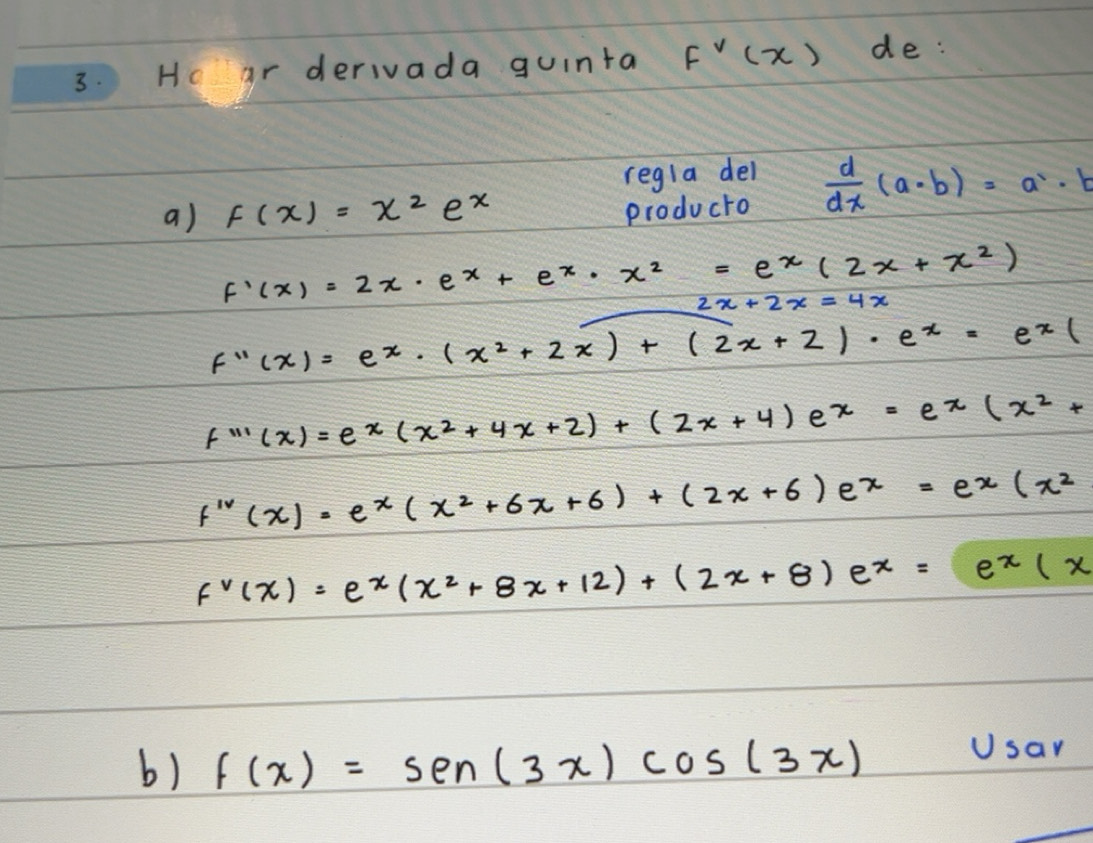 3. Hallar derivada quinta f^v (x) de:
regla del
a) f(x) = x² e^x producto d/dx (a·b) = a`· b
f`(x) = 2x · e^x + e^x · x² = e^x (2x + x²)
2x + 2x = 4x
f"(x) = e^x · (x² + 2x) + (2x + 2) · e^x = e^x (
f"'(x) = e^x (x² + 4x + 2) + (2x + 4) e^x = e^x (x² +
f^IV (x) = e^x (x² + 6x + 6) + (2x + 6) e^x = e^x (x²
f^v (x) = e^x (x² + 8x + 12) + (2x + 8) e^x = e^x ( x
b) f(x) = sen(3x) cos(3x) Usar